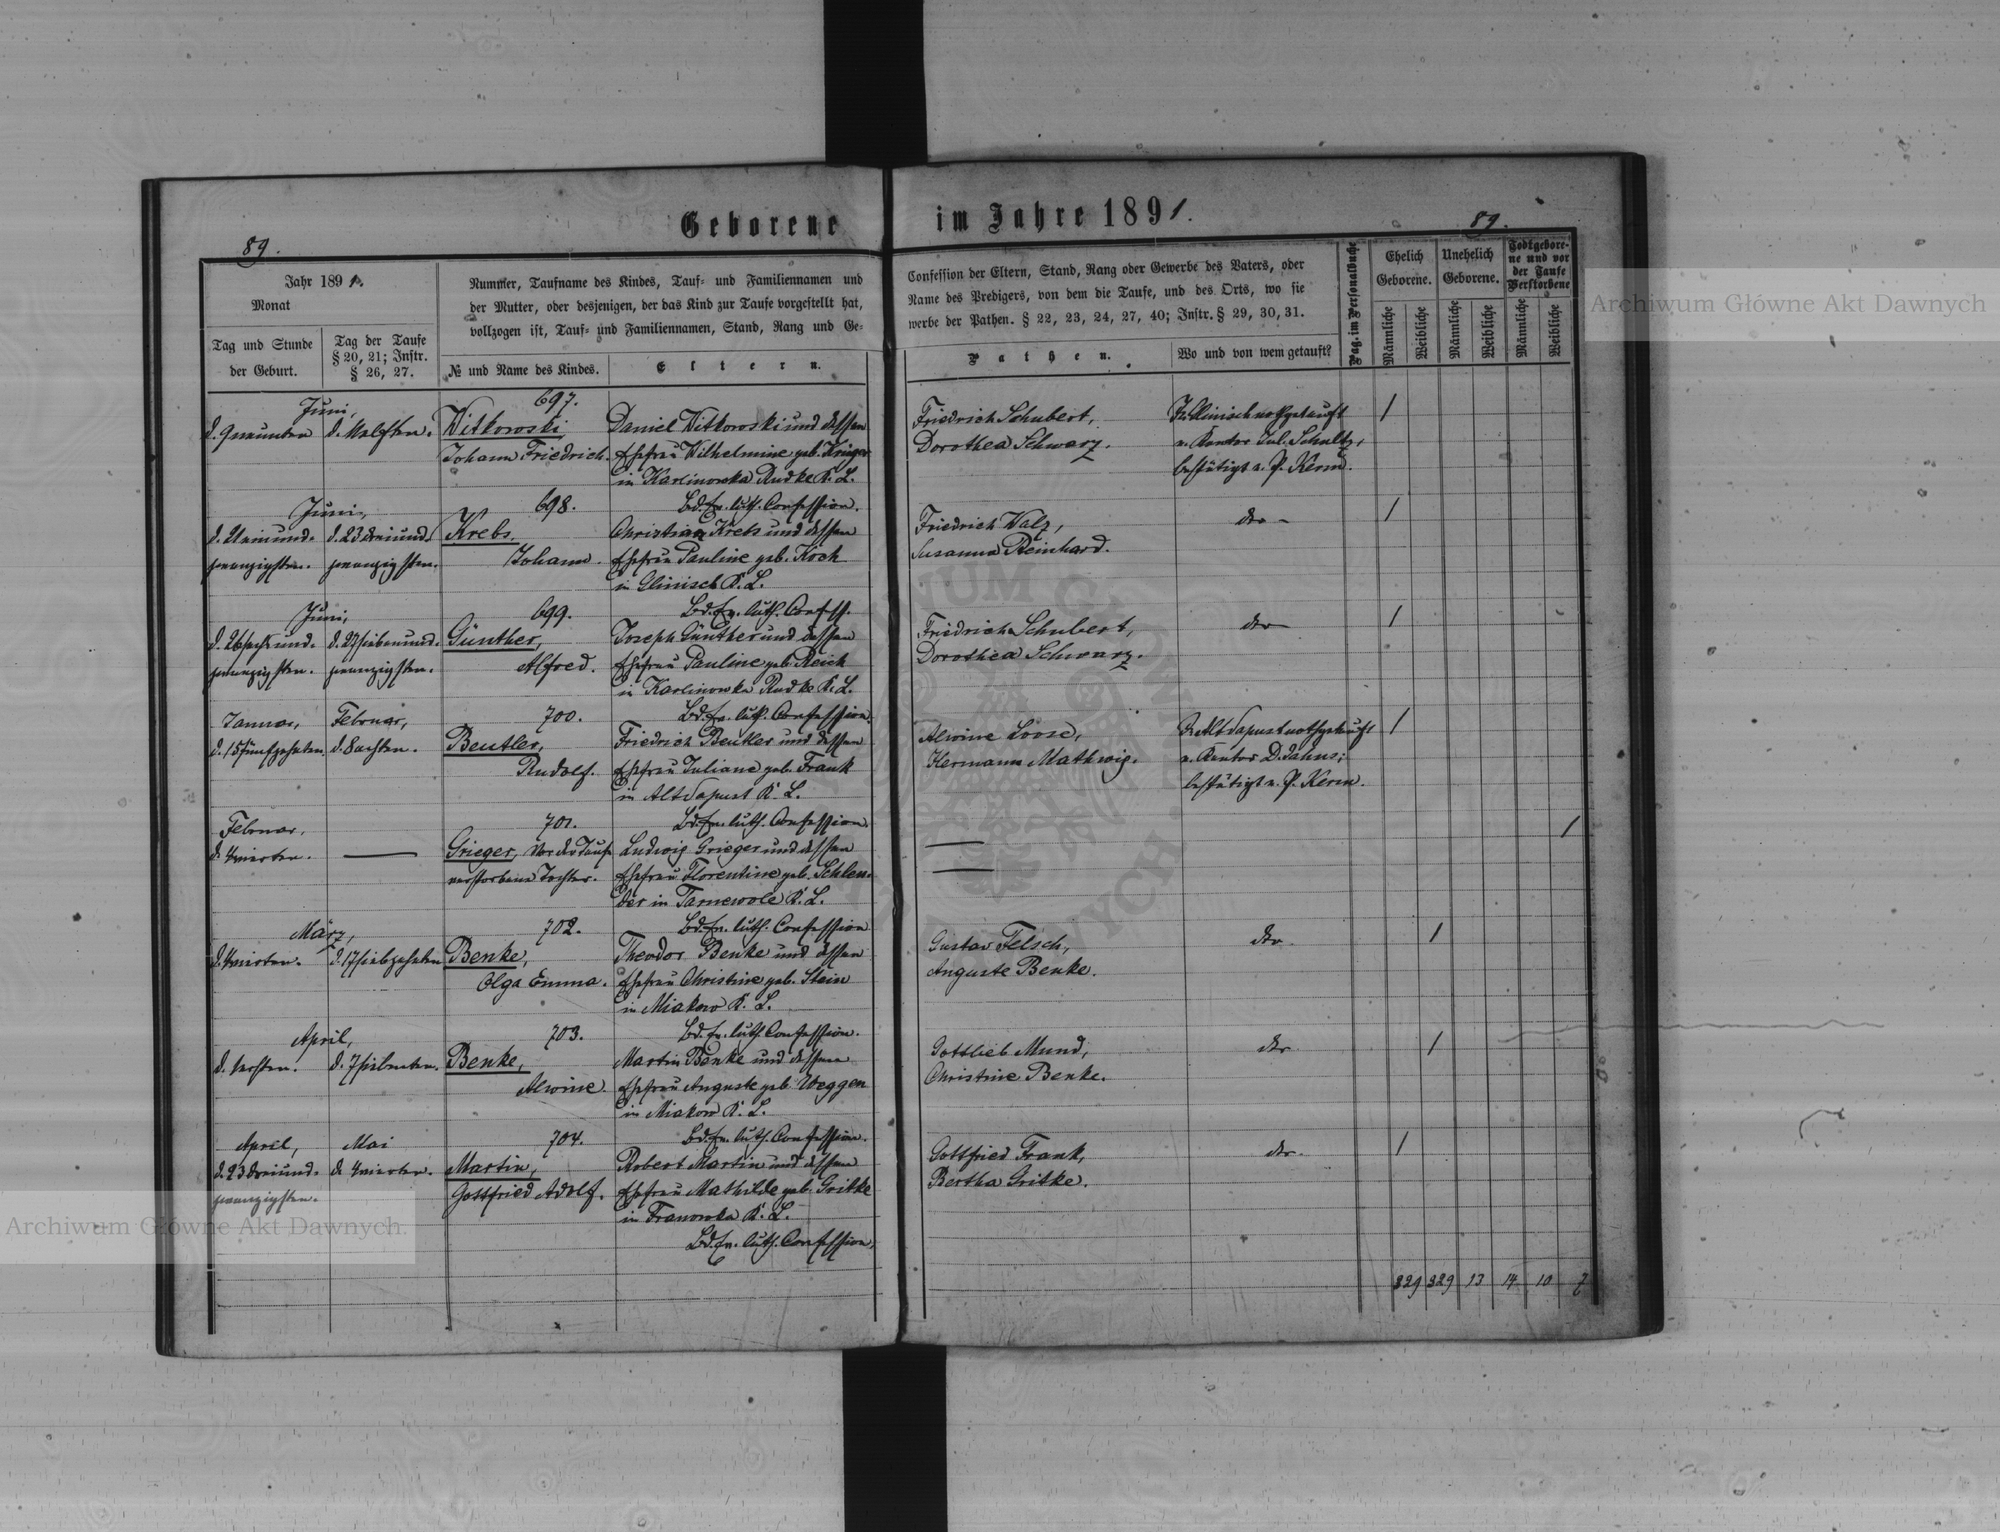 Geborene im Jahre 1891.
89.
89.
Jahr 1891.
Monat
Tag und Stunde
der Geburt.
Tag der Taufe
§ 20, 21; Instr.
§ 26, 27.
Nummer, Taufname des Kindes, Tauf- und Familiennamen und
der Mutter, oder desjenigen, der das Kind zur Taufe vorgestellt hat,
vollzogen ist, Tauf- und Familiennamen, Stand, Rang und Ge-
№ und Name des Kindes.
Eltern.
Confession der Eltern, Stand, Rang oder Gewerbe des Vaters, oder
Name des Predigers, von dem die Taufe, und des Orts, wo sie
werbe der Pathen. § 22, 23, 24, 27, 40; Instr. § 29, 30, 31.
Pathen.
Wo und von wem getauft?
Pag. im Personalbuche
Ehelich
Geborene.
Unehelich
Geborene.
Todtgebore-
ne und vor
der Taufe
Verstorbene
Männliche
Weibliche
Männliche
Weibliche
Männliche
Weibliche
Juni,
d. 9 neunten
d.
697.
Witkowski
Johann Friedrich.
Daniel Witkowski und dessen
Ehefrau Wilhelmine geb. Krüger
in Karlinowka Rudke K. L.
Bd. Ev. luth. Confession.
Friedrich Schubert,
Dorothea Schwarz.
nothgetauft
v. Kantor Jul. Schultz,
bestätigt v. P. Kerm.
1
Juni,
d. 21 einund-
zwanzigsten.
d. 23 dreiund-
zwanzigsten.
698.
Krebs
Johann.
Christian Krebs und dessen
Ehefrau Pauline geb. Koch
in Glinisch K. L.
Bd. Ev. luth. Confess.
Friedrich Walz,
Susanna Reinhard.
dto
1
Juni,
d. 26 sechsund-
zwanzigsten.
d. 27 siebenund-
zwanzigsten.
699.
Günther,
Alfred.
Joseph Günther und dessen
Ehefrau Pauline geb. Reich
in Karlinowka Rudke K. L.
Bd. Ev. luth. Confession.
Friedrich Schubert,
Dorothea Schwarz.
dto
1
Januar,
d. 15 fünfzehnten
Februar,
d. 8 achten.
700.
Beutler,
Rudolf.
Friedrich Beutler und dessen
Ehefrau Juliane geb. Frank
in Altdapust K. L.
Bd. Ev. luth. Confession.
Alwine Loose,
Hermann Mathwig.
In Altdapust nothgetauft
v. Kantor D. Jahns;
bestätigt v. P. Kerm.
1
Februar.
d. 4 vierten.
701.
Grieger, vor der Taufe
verstorbene Tochter.
Ludwig Grieger und dessen
Ehefrau Florentine geb. Schlen-
der in Tarnewole K. L.
Bd. Ev. luth. Confession
1
März,
d. 4 vierten.
d. 17 siebzehnten
702.
Benke,
Olga Emma.
Theodor Benke und dessen
Ehefrau Christine geb. Stein
in Miakow K. L.
Bd. Ev. luth. Confession.
Gustav Felsch,
Auguste Benke.
dto.
1
April,
d. 1 ersten.
d. 7 siebenten.
703.
Benke,
Alwine.
Martin Benke und dessen
Ehefrau Auguste geb. Weggen
in Miakow K. L.
Bd. Ev. luth. Confession.
Gottlieb Mund,
Christine Benke.
dto.
1
April,
d. 23 dreiund-
zwanzigsten.
Mai
d. 4 vierten.
704.
Martin,
Gottfried Adolf.
Robert Martin und dessen
Ehefrau Mathilde geb. Gritke
in Franowka K. L.
Bd. Ev. luth. Confession.
Gottfried Frank,
Bertha Gritke.
dto.
1
329 329 13 14 10 7
Archiwum Główne Akt Dawnych
Archiwum Główne Akt Dawnych.